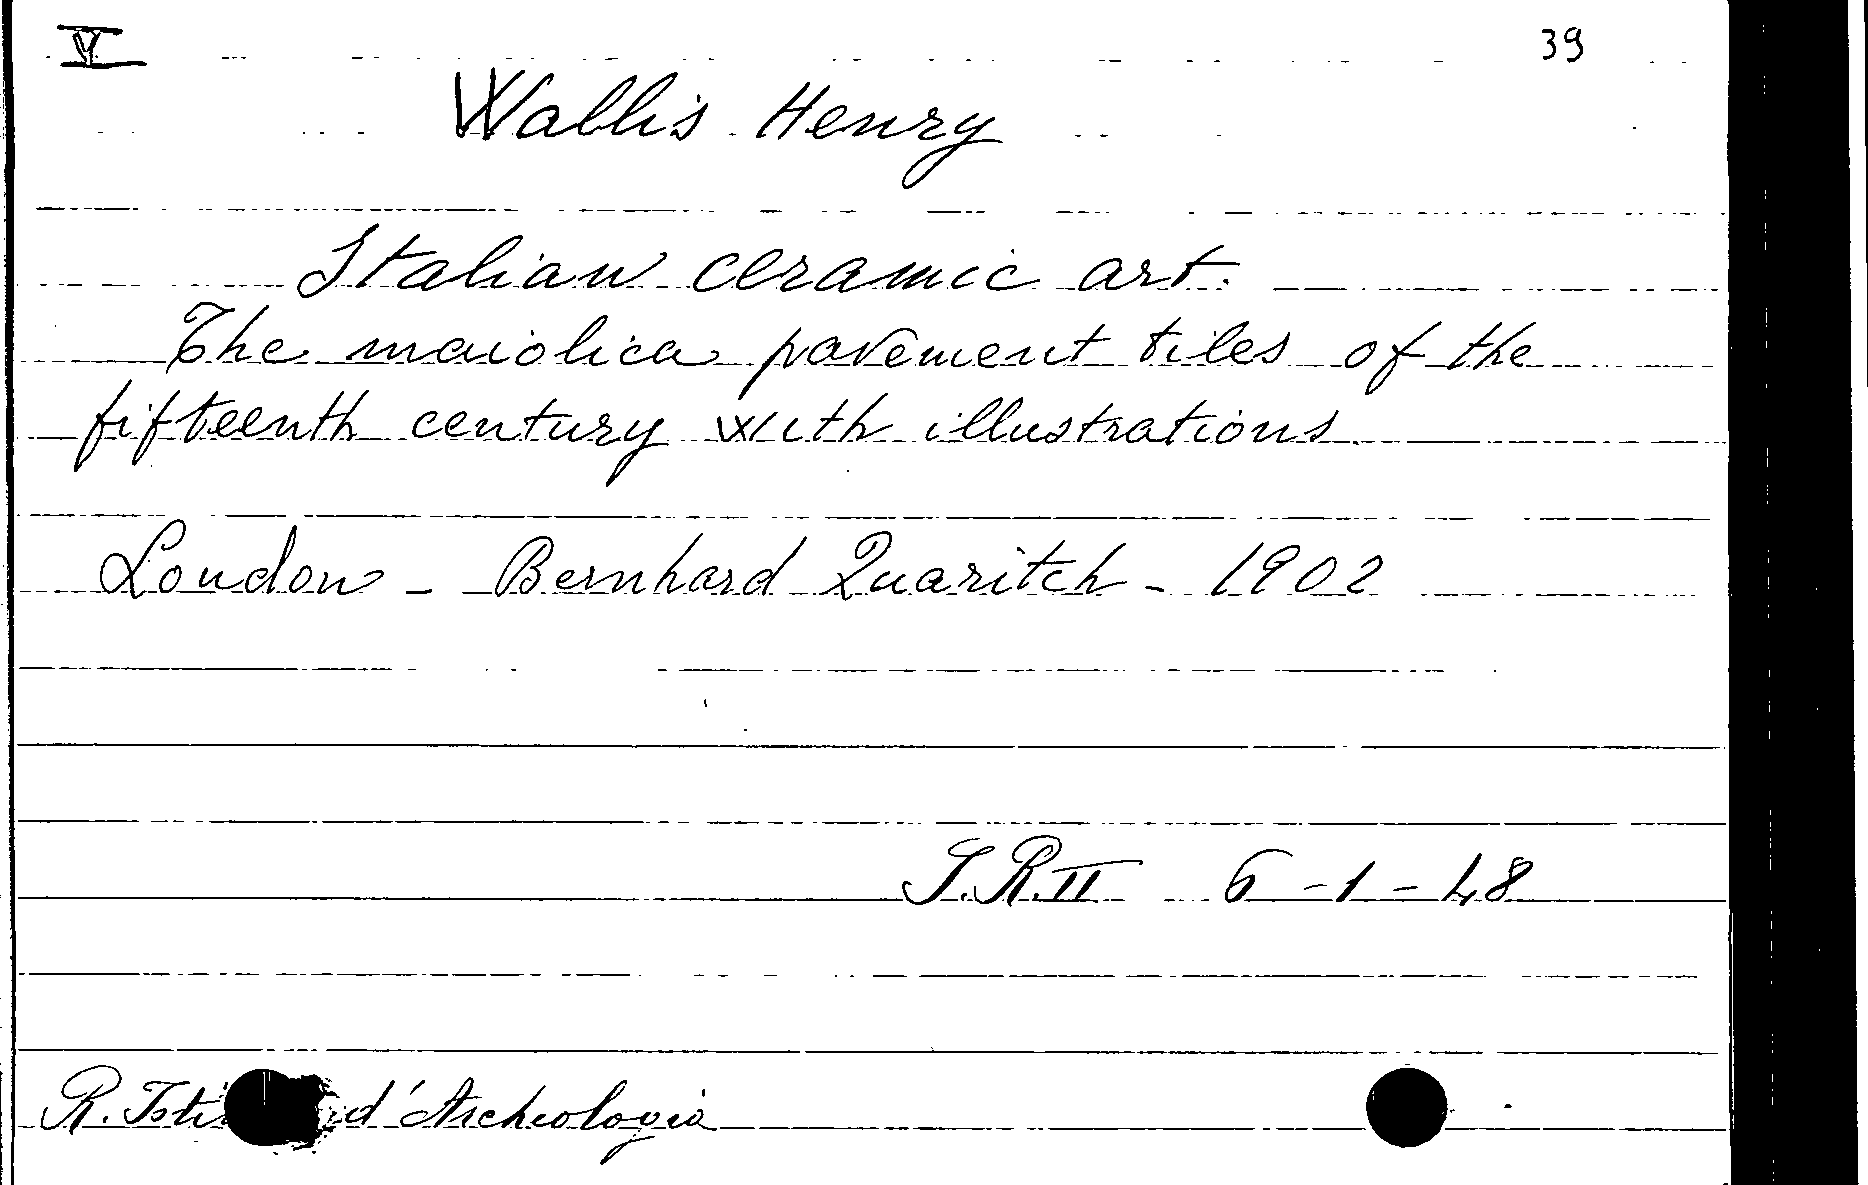 V 39
Wallis Henry
Italian ceramic art.
The maiolica pavement tiles of the
fifteenth century with illustrations
London - Bernhard Quaritch - 1902
S.R.II 6-1-48
R. d'Archeologia